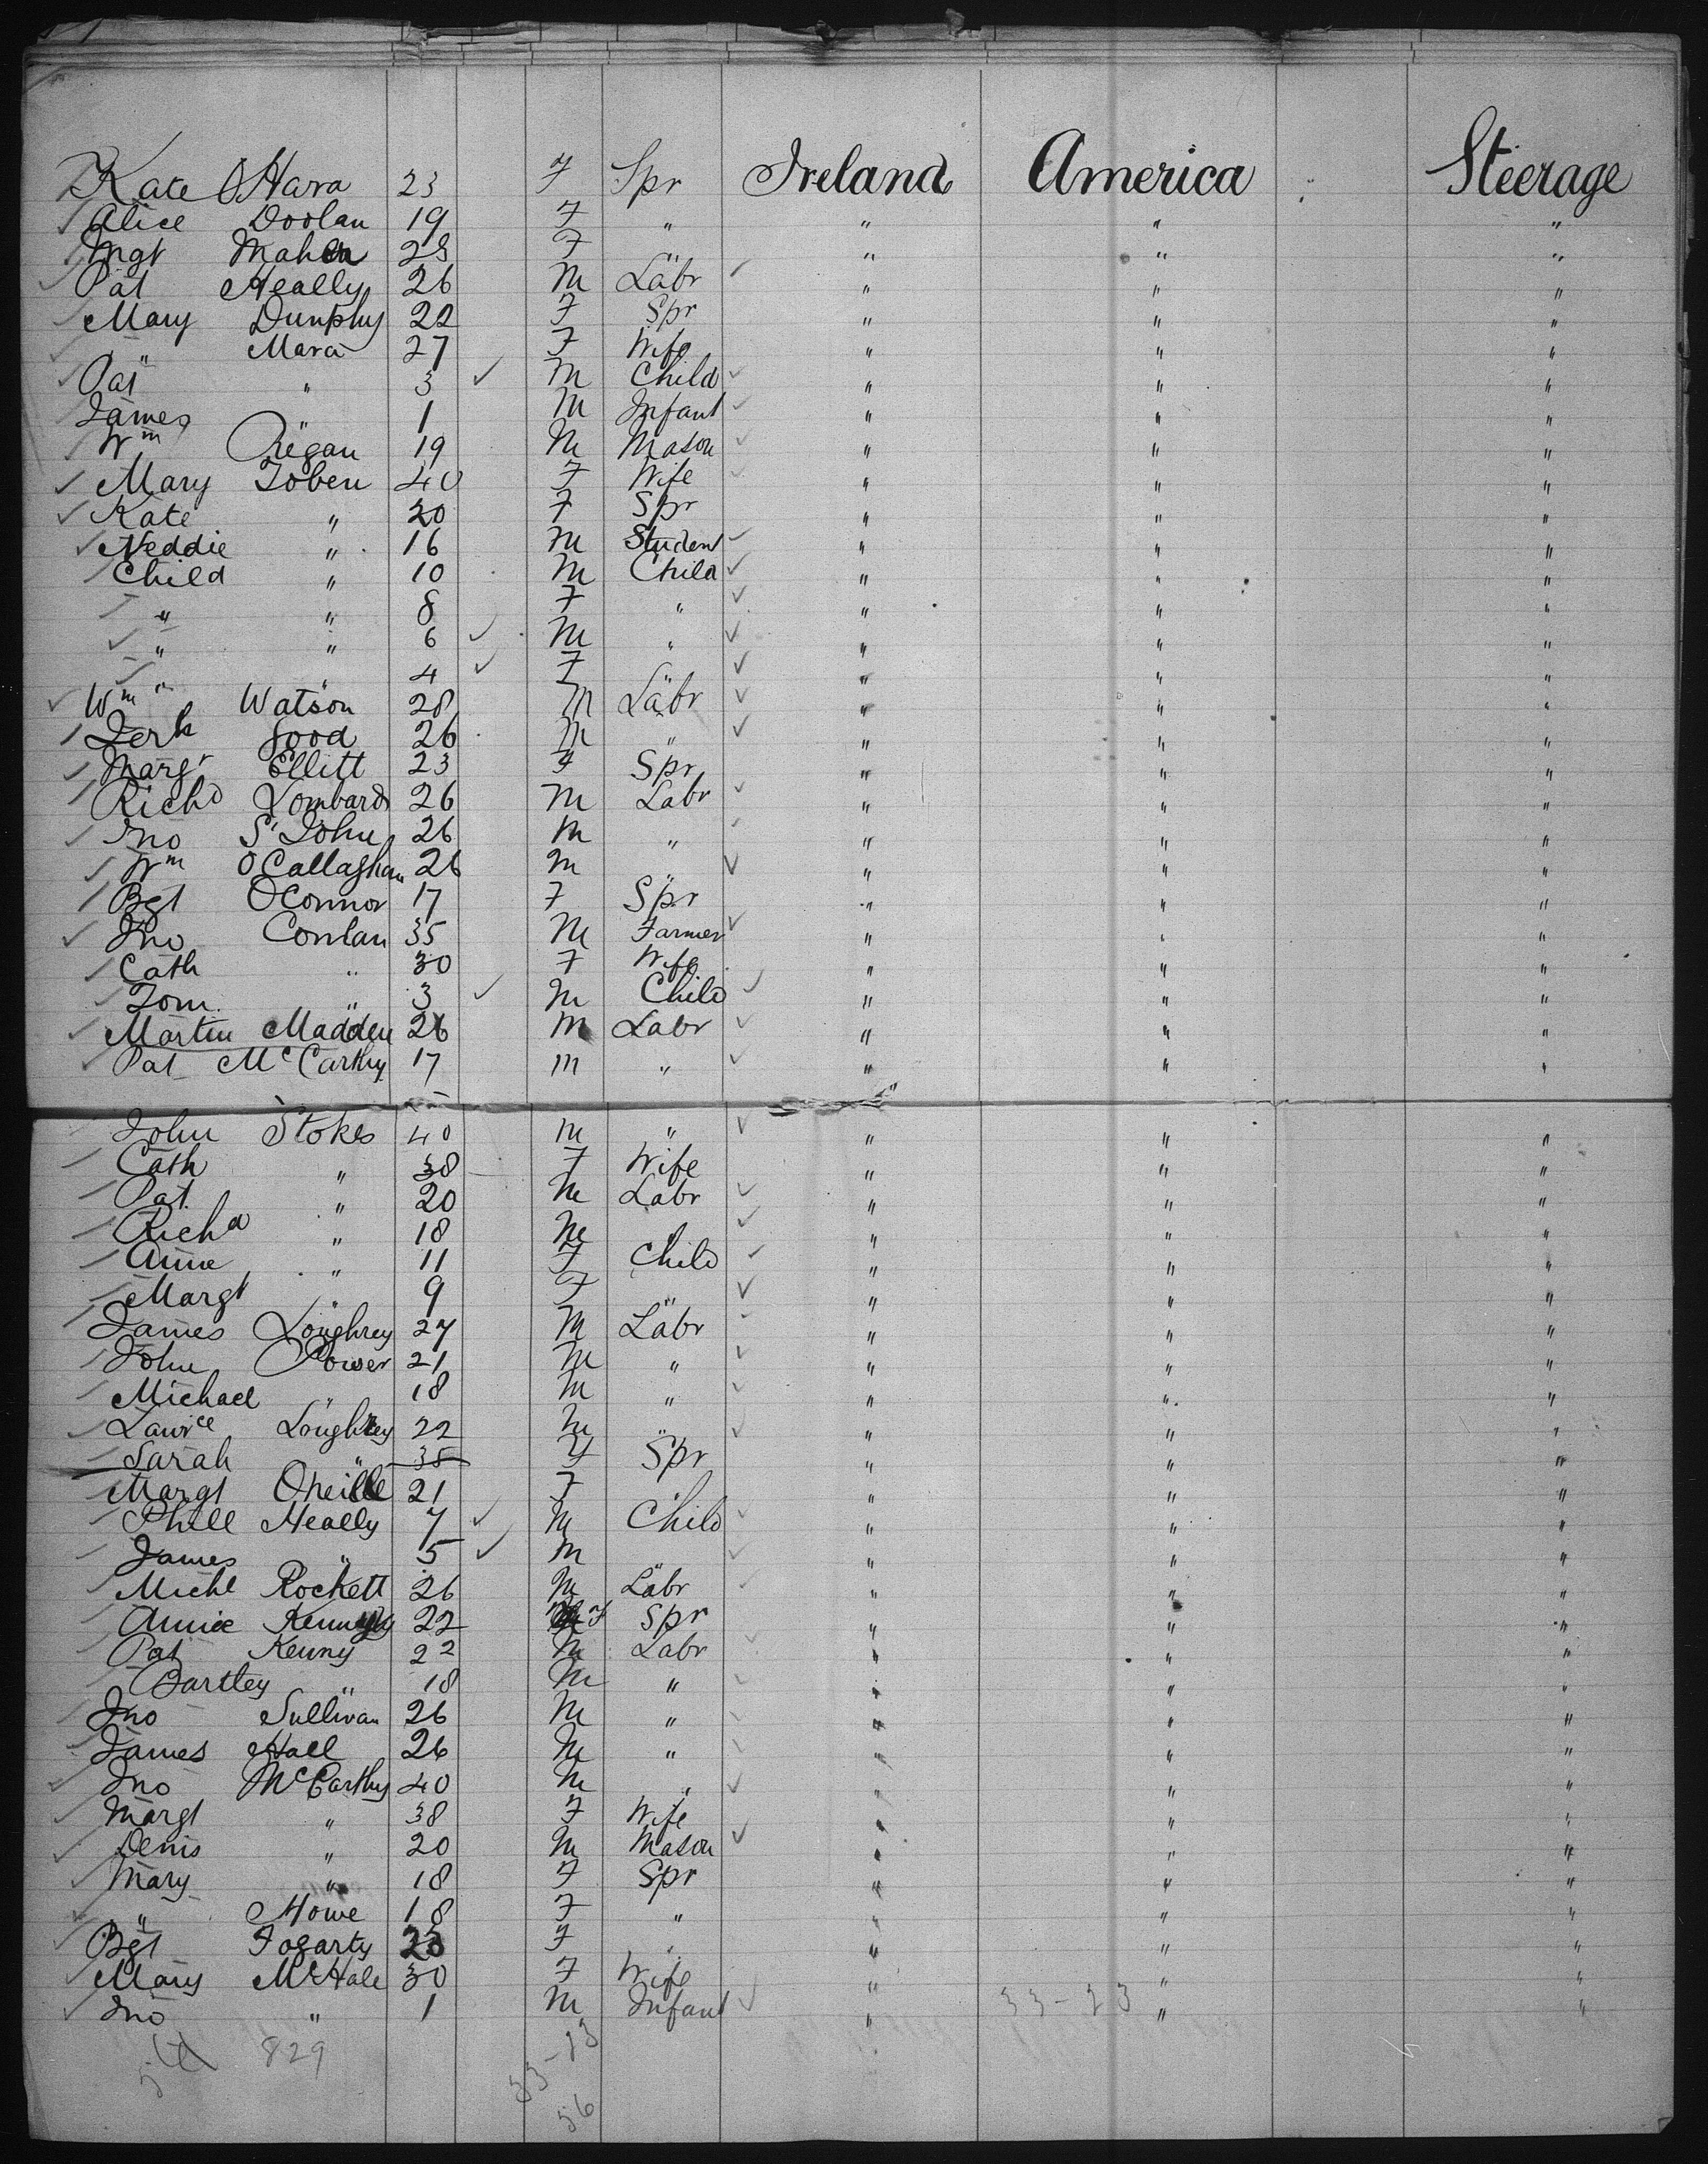 Kate O'Hara 23 F Spr Ireland America " Steerage
Alice Doolan 19 F " " " "
Mgt Maher 28 F " " " "
Pat Heally 26 M Labr " " "
Mary Dunphy 22 F Spr " " "
" Mara 27 F Wife " " "
Pat " 3 M Child " " "
James " 1 M Infant " " "
Wm Regan 19 M Mason " " "
Mary Toben 40 F Wife " " "
Kate " 20 F Spr " " "
Neddie " 16 M Student " " "
Child " 10 M Child " " "
" " 8 F " " " "
" " 6 M " " " "
" " 4 F " " " "
Wm Watson 28 M Labr " " "
Jerh Good 26 M " " " "
Margt Ellitt 23 F Spr " " "
Richd Lombard 26 M Labr " " "
Jno St John 26 M " " " "
Wm O'Callaghan 26 M " " " "
Bgt O'Connor 17 F Spr " " "
Jno Conlan 35 M Farmer " " "
Cath " 30 F Wife " " "
Tom " 3 M Child " " "
Martin Madden 26 M Labr " " "
Pat McCarthy 17 M " " " "
John Stokes 40 M " " " "
Cath " 38 F Wife " " "
Pat " 20 M Labr " " "
Richd " 18 M " " " "
Anne " 11 F Child " " "
Margt " 9 F " " " "
James Loughrey 27 M Labr " " "
John Power 21 M " " " "
Michael " 18 M " " " "
Lawrce Loughrey 22 M " " " "
Sarah " 35 F Spr " " "
Margt Oneille 21 F " " " "
Phill Heally 7 M Child " " "
James " 5 M " " " "
Michl Rockett 26 M Labr " " "
Annie 22 F Spr " " "
Pat Kenny 22 M Labr " " "
Bartley " 18 M " " " "
Jno Sullivan 26 M " " " "
James Hall 26 M " " " "
Jno McCarthy 40 M " " " "
Margt " 38 F Wife " " "
Denis " 20 M Mason " " "
Mary " 18 F Spr " " "
" Howe 18 F " " " "
Bgt Fogarty F " " " "
Mary McHale 30 F Wife " " "
Jno " 1 M Infant " " "
33-23
829
33-23
56